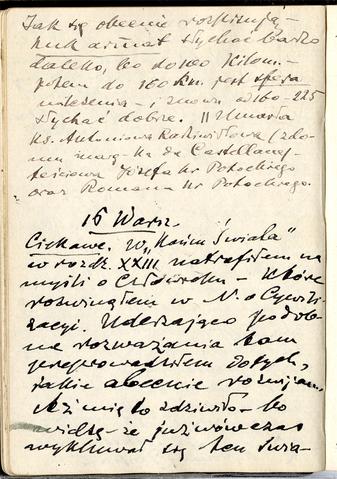 Jak się obecnie
huk armat słychać bardzo
daleko, bo do 100 kilom. –
potem do 160 km. jest sfera
milczenia – i znowu od 160–225
słychać dobrze. || Umarła
ks. Antoniowa Radziwiłłowa (z do-
mu margr-ka de Castellane) –
teściowa Józefa hr Potockiego
oraz Romana hr Potockiego.
16 Warsz.
Ciekawe. W „Końcu Świata"
w rozdz. XXIII natrafiłem na
myśli o człowieku – które
rozwinąłem w N. o Cywili-
zacyi. Uderzająco podob-
ne rozważania tam
przeprowadziłem do tych,
jakie obecnie rozwijam.
Aż mię to zdziwiło – bo
widzę – że już wówczas
wykluwał się ten świa-